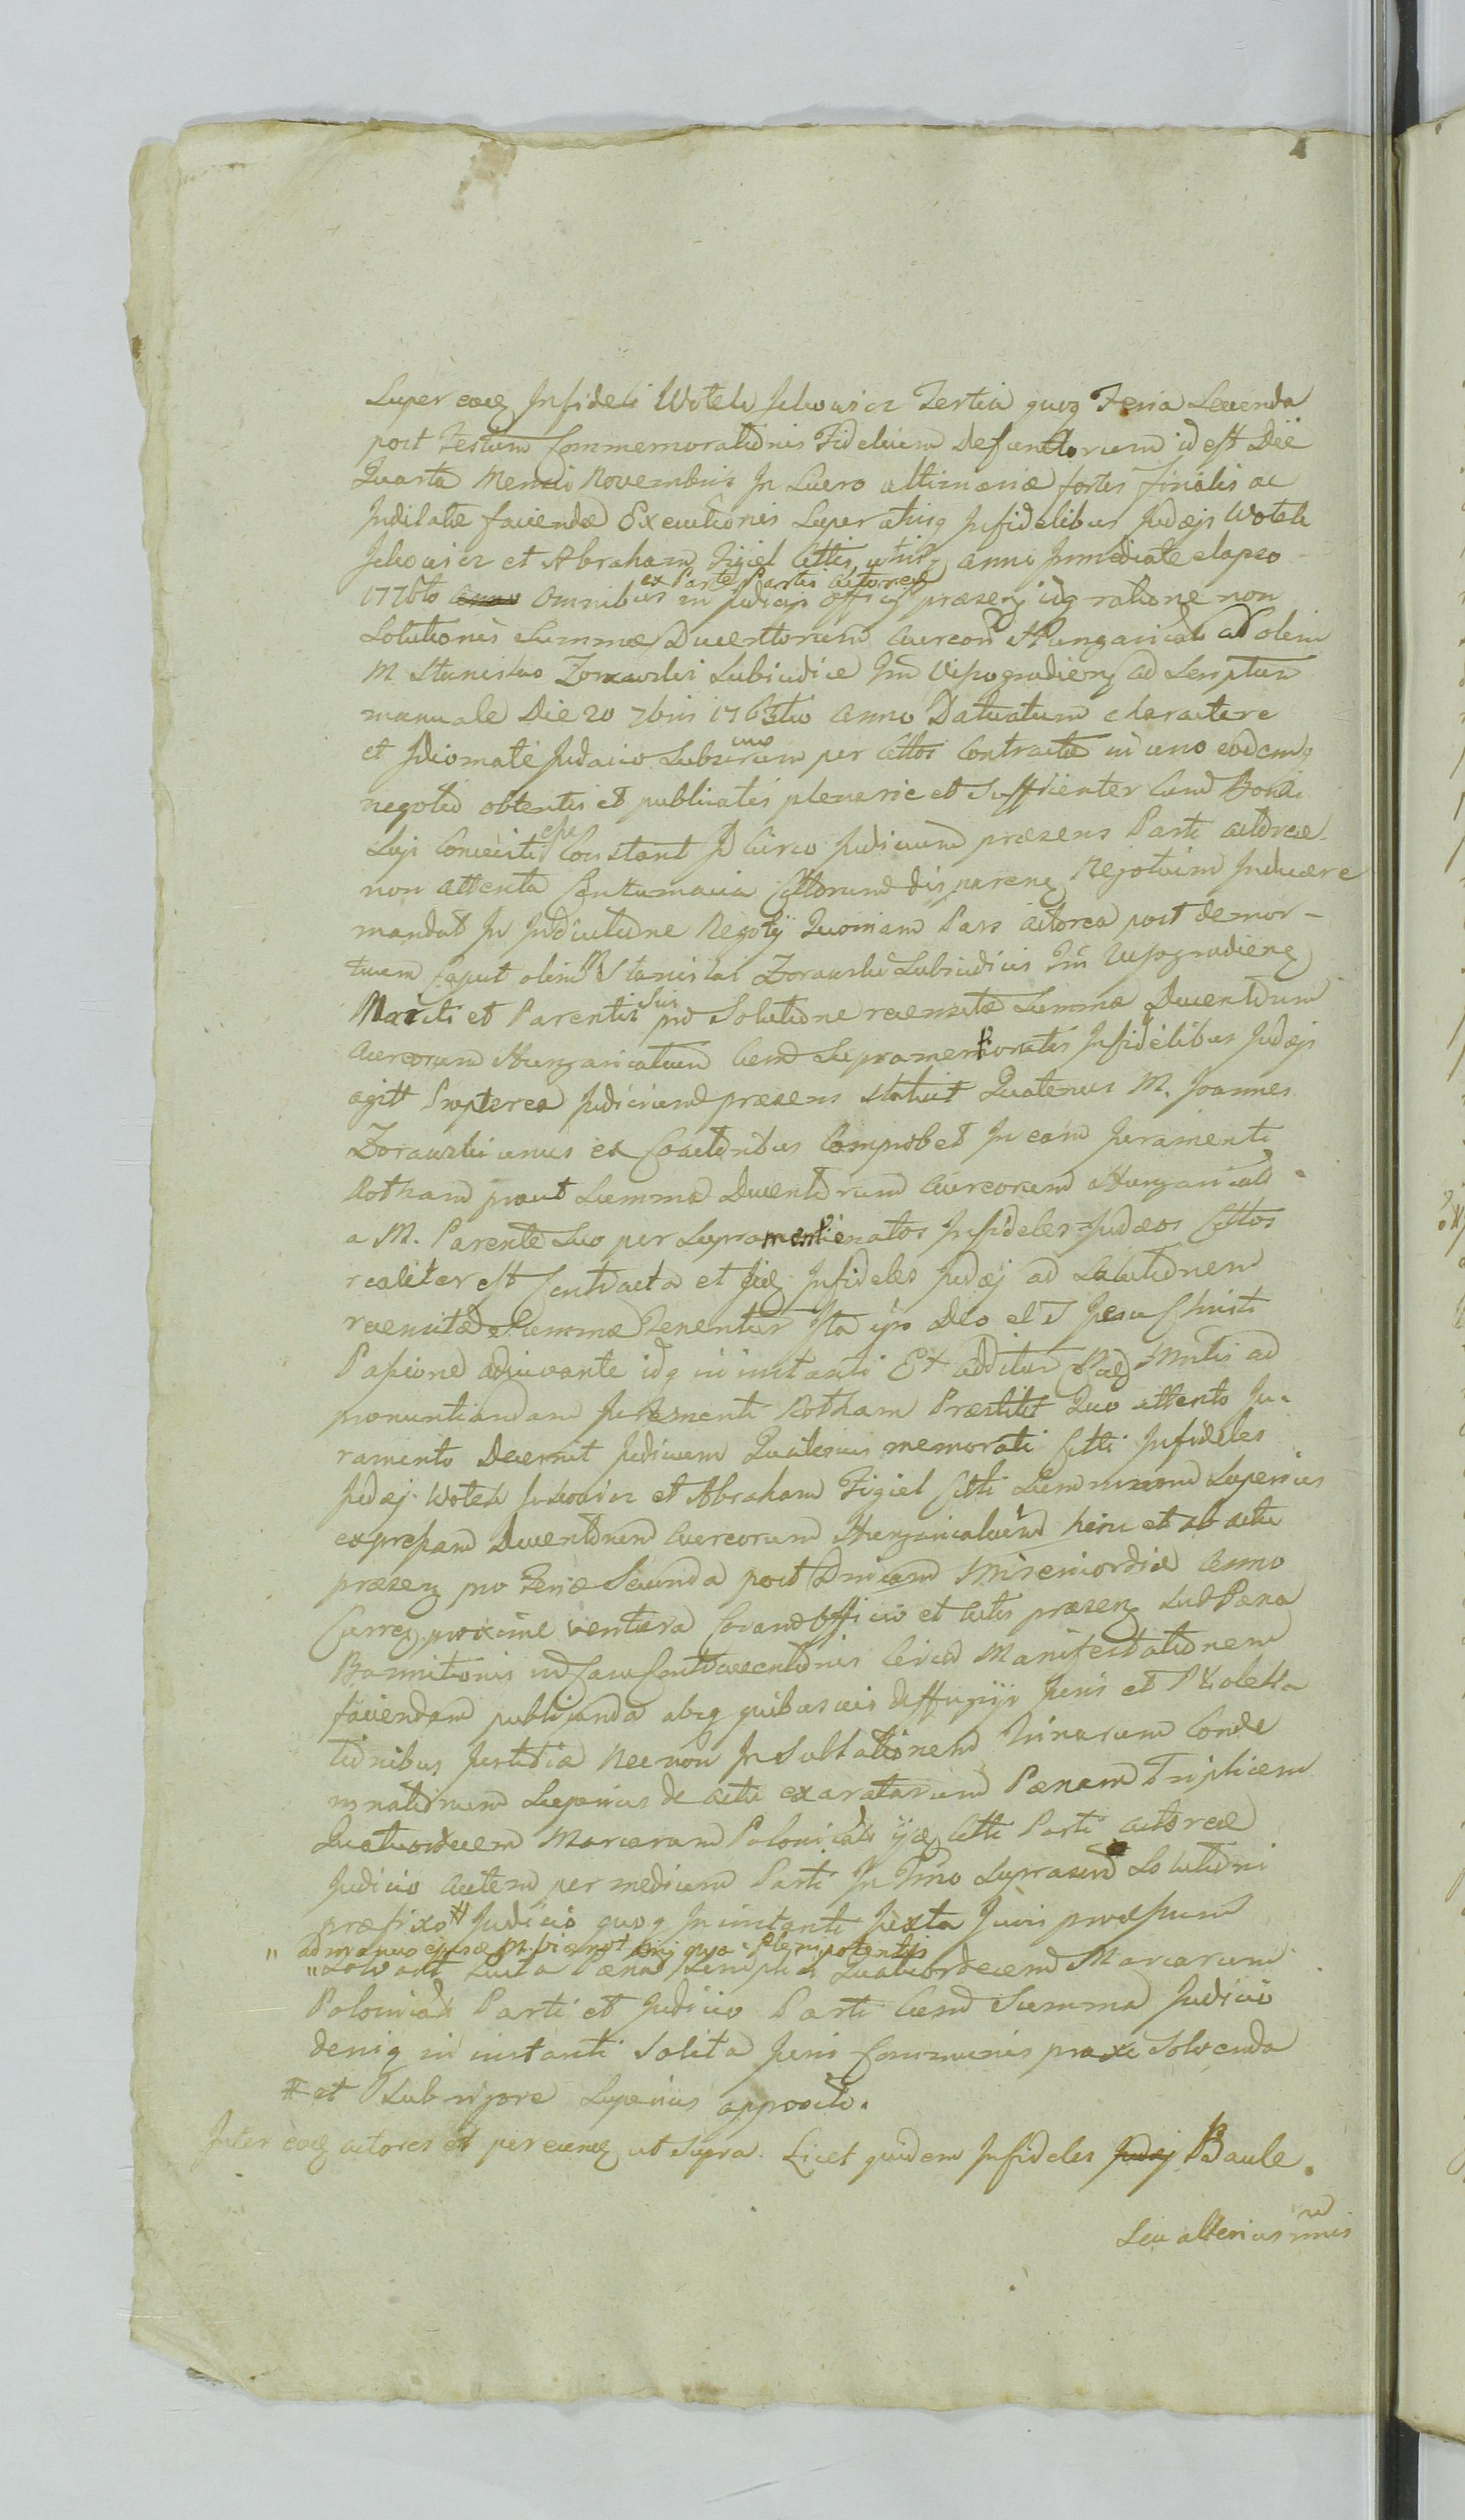 Super eoq Infideli Wotek Jckowicz Tertia quoq Feria Secunda
post Festum Commemorationis Fidelium Defunctorum id est Die
Quarta Mensis Novembris In Lucro ultimariæ fortis finalis ac
Indilatæ faciendæ Executionis Super utrisq Infidelibus Judæjs Wotek
Jckowicz et Abraham Figiel Cttis utrisq anni Immediate elapso
1776to Omnibus ex Parte Partis Actoreæ in Judicijs Officij præsen idq ratione non
Solutionis Summæ Ducentorum Aureorum Hungaricali ad olim
M Stanislao Zorawski Subiudice Visogrodien ad Scriptum
manuale Die 20 7bris 1763tio Anno Datuatum charactere
et Idiomate Judaico Subscriptum per Cttos Contractæ in uno eodemq
negotio obtentis et publicatis plenarie et Sufficienter Cum Bonis
Suis Convicti esse Constant Id circo Judicium præsens Parti actoreæ
non attenta Contumacia Cttorum disparen Negotium Inducere
mandat In Inductione Negotij Quoniam Pars actorea post demor-
tuum Caput olim M Stanislai Zorawski Subiudicis Visogrodien
Mariti et Parentis Sui pro Solutione recensitæ Summæ Ducentorum
Aureorum Hungaricalium Cum Supramentionatis Infidelibus Judæjs
agitt Propterea Judicium præsens statuit Quatenus M. Joannes
Zorawski unus ex Coactoribus Comprobet In eam Juramenti
Rotham prout Summa Ducentorum Aureorum Hungaricali
a M. Parente Suo per Supramentionatos Infideles Judæos Cttos
realiter est Contracta et Infideles Judæj ad Solutionem
recensitæ Summæ Tenentur Ita ipso Deo et Jesu Christi
Passione adiuvante idq in instanti Et additus Mtis ad
pronuntiandam Juramenti Rotham Præstitit Quo attento Ju-
ramento Decernit Judicium Quatenus memorati Ctti Infideles
Judæj Wotek Jckowicz et Abraham Figiel Ctti Summam Superius
expressam Ducentorum Aureorum Hungaricalium hinc et ab actu
præsen pro Feria Secunda post Dnicam Misericordiæ Anno
Curren proxime ventura Coram Officio et Actis præsen Sub Pæna
Bannitionis in Casu Contraventionis Circa Manifestationem
faciendam publicanda absq quibusvis diffugijs Juris et Prolata
tionibus Justitiæ Necnon In Solutionem Trinarum Conde
mnationum Superius de Actu exaratarum Pænam Triplicem
Quatuordecem Marcarum Polonicali Ctti Parti actoreæ
Judicio Autem per medium Parti In Tmno Suprascrip Solutioni
præfixo # Judicio quoq In instanti Juxta Juris præscripum
" ad manus plenipotentis
" Solvant Luita Pæna Simplici Quatuordecem Marcarum
Polonicali Parti et Judicio Parti Cum Summa Judicio
deniq in instanti Solita Juris Communis praxi Solvenda
# et Sub rigore Superius apposito.
Inter eosq actores et percunq ut Supra. Licet quidem Infideles Judæj Baule.
Seu alterius